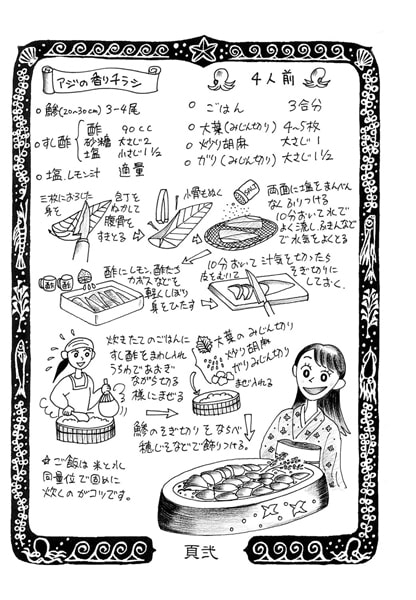 アジの香りチラシ
4人前
○ 鯵(20〜30cm) 3〜4尾
○ すし酢
酢 90cc
砂糖 大さじ2
塩 小さじ1½
○ 塩、レモン汁 適量
○ ごはん 3合分
○ 大葉(みじん切り) 4〜5枚
○ 炒り胡麻 大さじ1
○ ガリ(みじん切り) 大さじ1½
三枚におろした
身を
包丁を
ねかして
腹骨を
すきとる
小骨をぬく
SALT
両面に塩をまんべん
なくふりつける
10分おいて水で
よく流し、ふきんなど
で水気をよくとる
酢
酢
酢にレモン、酢だち
カボスなどを
軽くしぼり
身をひたす
10分おいて汁気を切ったら
皮をむいて
そぎ切りに
しておく。
炊きたてのごはんに
すし酢をまわし入れ
うちわであおぎ
ながら切る
様にまぜる
大葉のみじん切り
炒り胡麻
ガリみじん切り
まぜ入れる
鯵のそぎ切りをならべ
穂じそなどで飾りつける。
☆ ご飯は米と水
同量位で固めに
炊くのがコツです。
頁弐